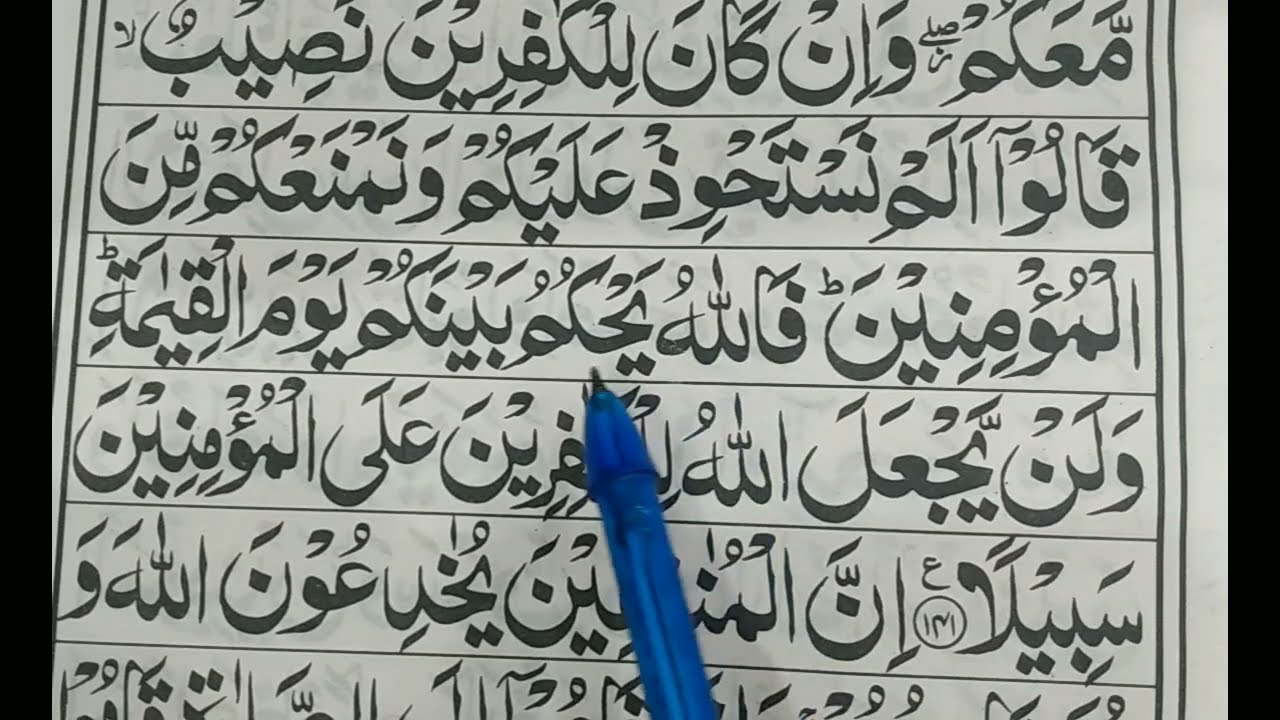 مَّعَكُمْ ۖ وَاِنْ كَانَ لِلْكٰفِرِيْنَ نَصِيْبٌ ۙ
قَالُوْۤا اَلَمْ نَسْتَحْوِذْ عَلَيْكُمْ وَنَمْنَعْكُمْ مِّنَ
الْمُؤْمِنِيْنَ ؕ فَاللّٰهُ يَحْكُمُ بَيْنَكُمْ يَوْمَ الْقِيٰمَةِ ؕ
وَلَنْ يَّجْعَلَ اللّٰهُ لِلْكٰفِرِيْنَ عَلَى الْمُؤْمِنِيْنَ
سَبِيْلًا ۱۴۱ ع اِنَّ الْمُنٰفِقِيْنَ يُخٰدِعُوْنَ اللّٰهَ وَ